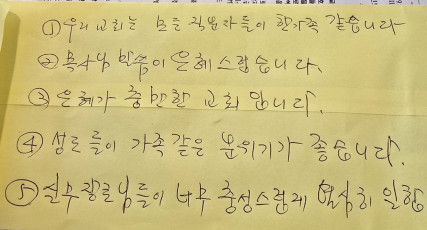 ① 우리 교회는 모든 직분자들이 한가족 같습니다
② 목사님 말씀이 은혜스럽습니다.
③ 은혜가 충만한 교회 입니다.
④ 성도들이 가족같은 분위기가 좋습니다.
⑤ 시무장로님들이 너무 충성스럽게 열심히 일함